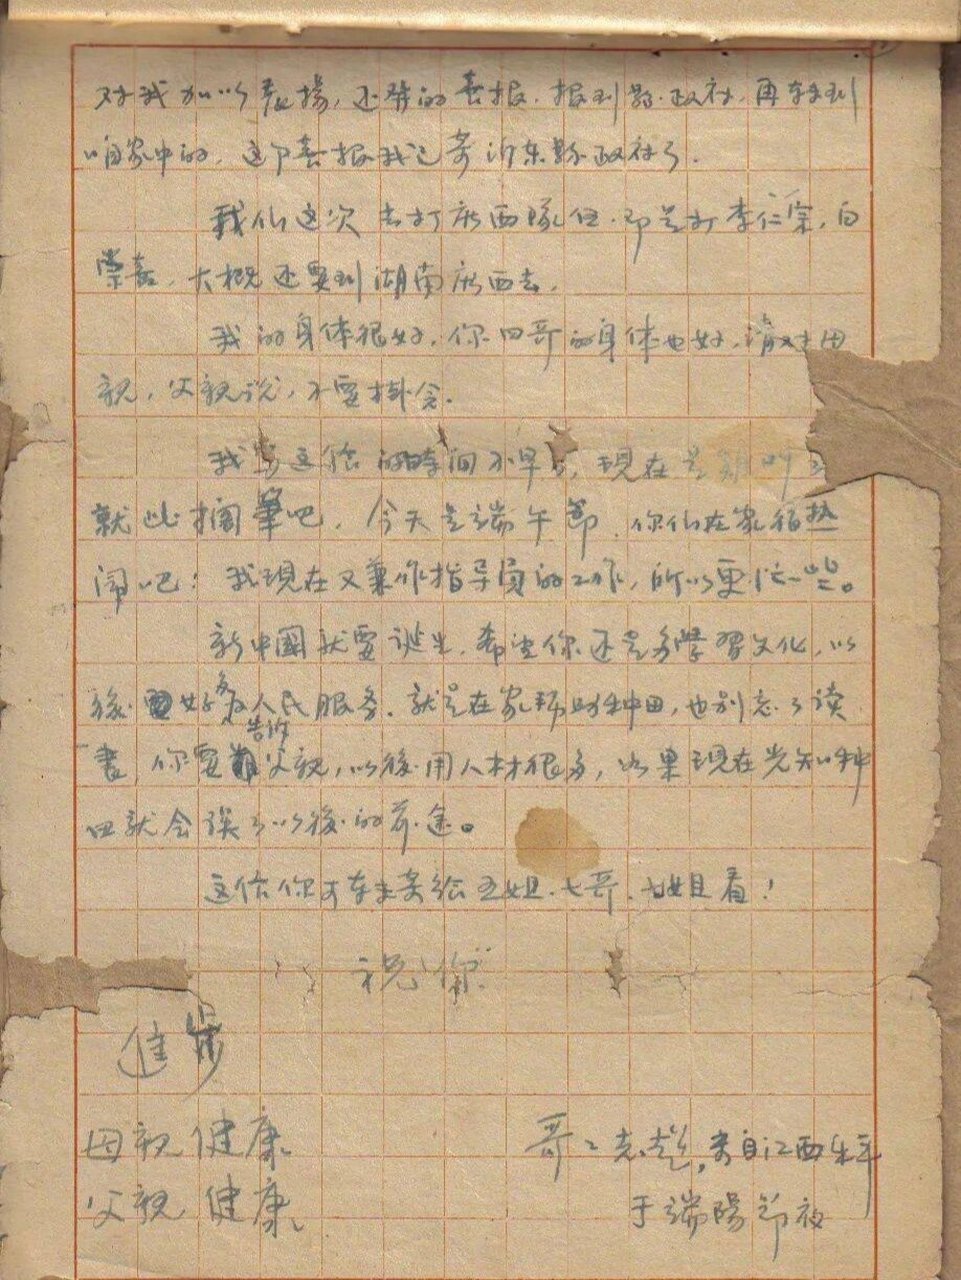 对我加以表揚，还發的喜报．报到縣政府，再转到
咱家中的，这个喜报我已寄沂东縣政府了．
我们这次去打廣西隊伍．即是打李仁宗，白
崇喜，大概还要到湖南廣西去．
我的身体很好，你四哥的身体也好，請对母
親，父親说，不要掛念．
我写这信的時间不早了，現在是雞叫
就此擱筆吧，今天是端午節，你们在家很热
闹吧！我現在又兼作指导員的工作，所以更忙一些。
新中國就要诞生，希望你还是多學習文化，以
後好多为人民服务．就是在家帮助种田，也别忘了读
書，你要告诉父親，以後用人材很多，如果現在光知种
田就会误了以後的前途。
这信你可转来寄给五姐．七哥．七姐看！
祝你
進步
母親健康
父親健康
哥：志彪，寄自江西乐平
于端陽節夜